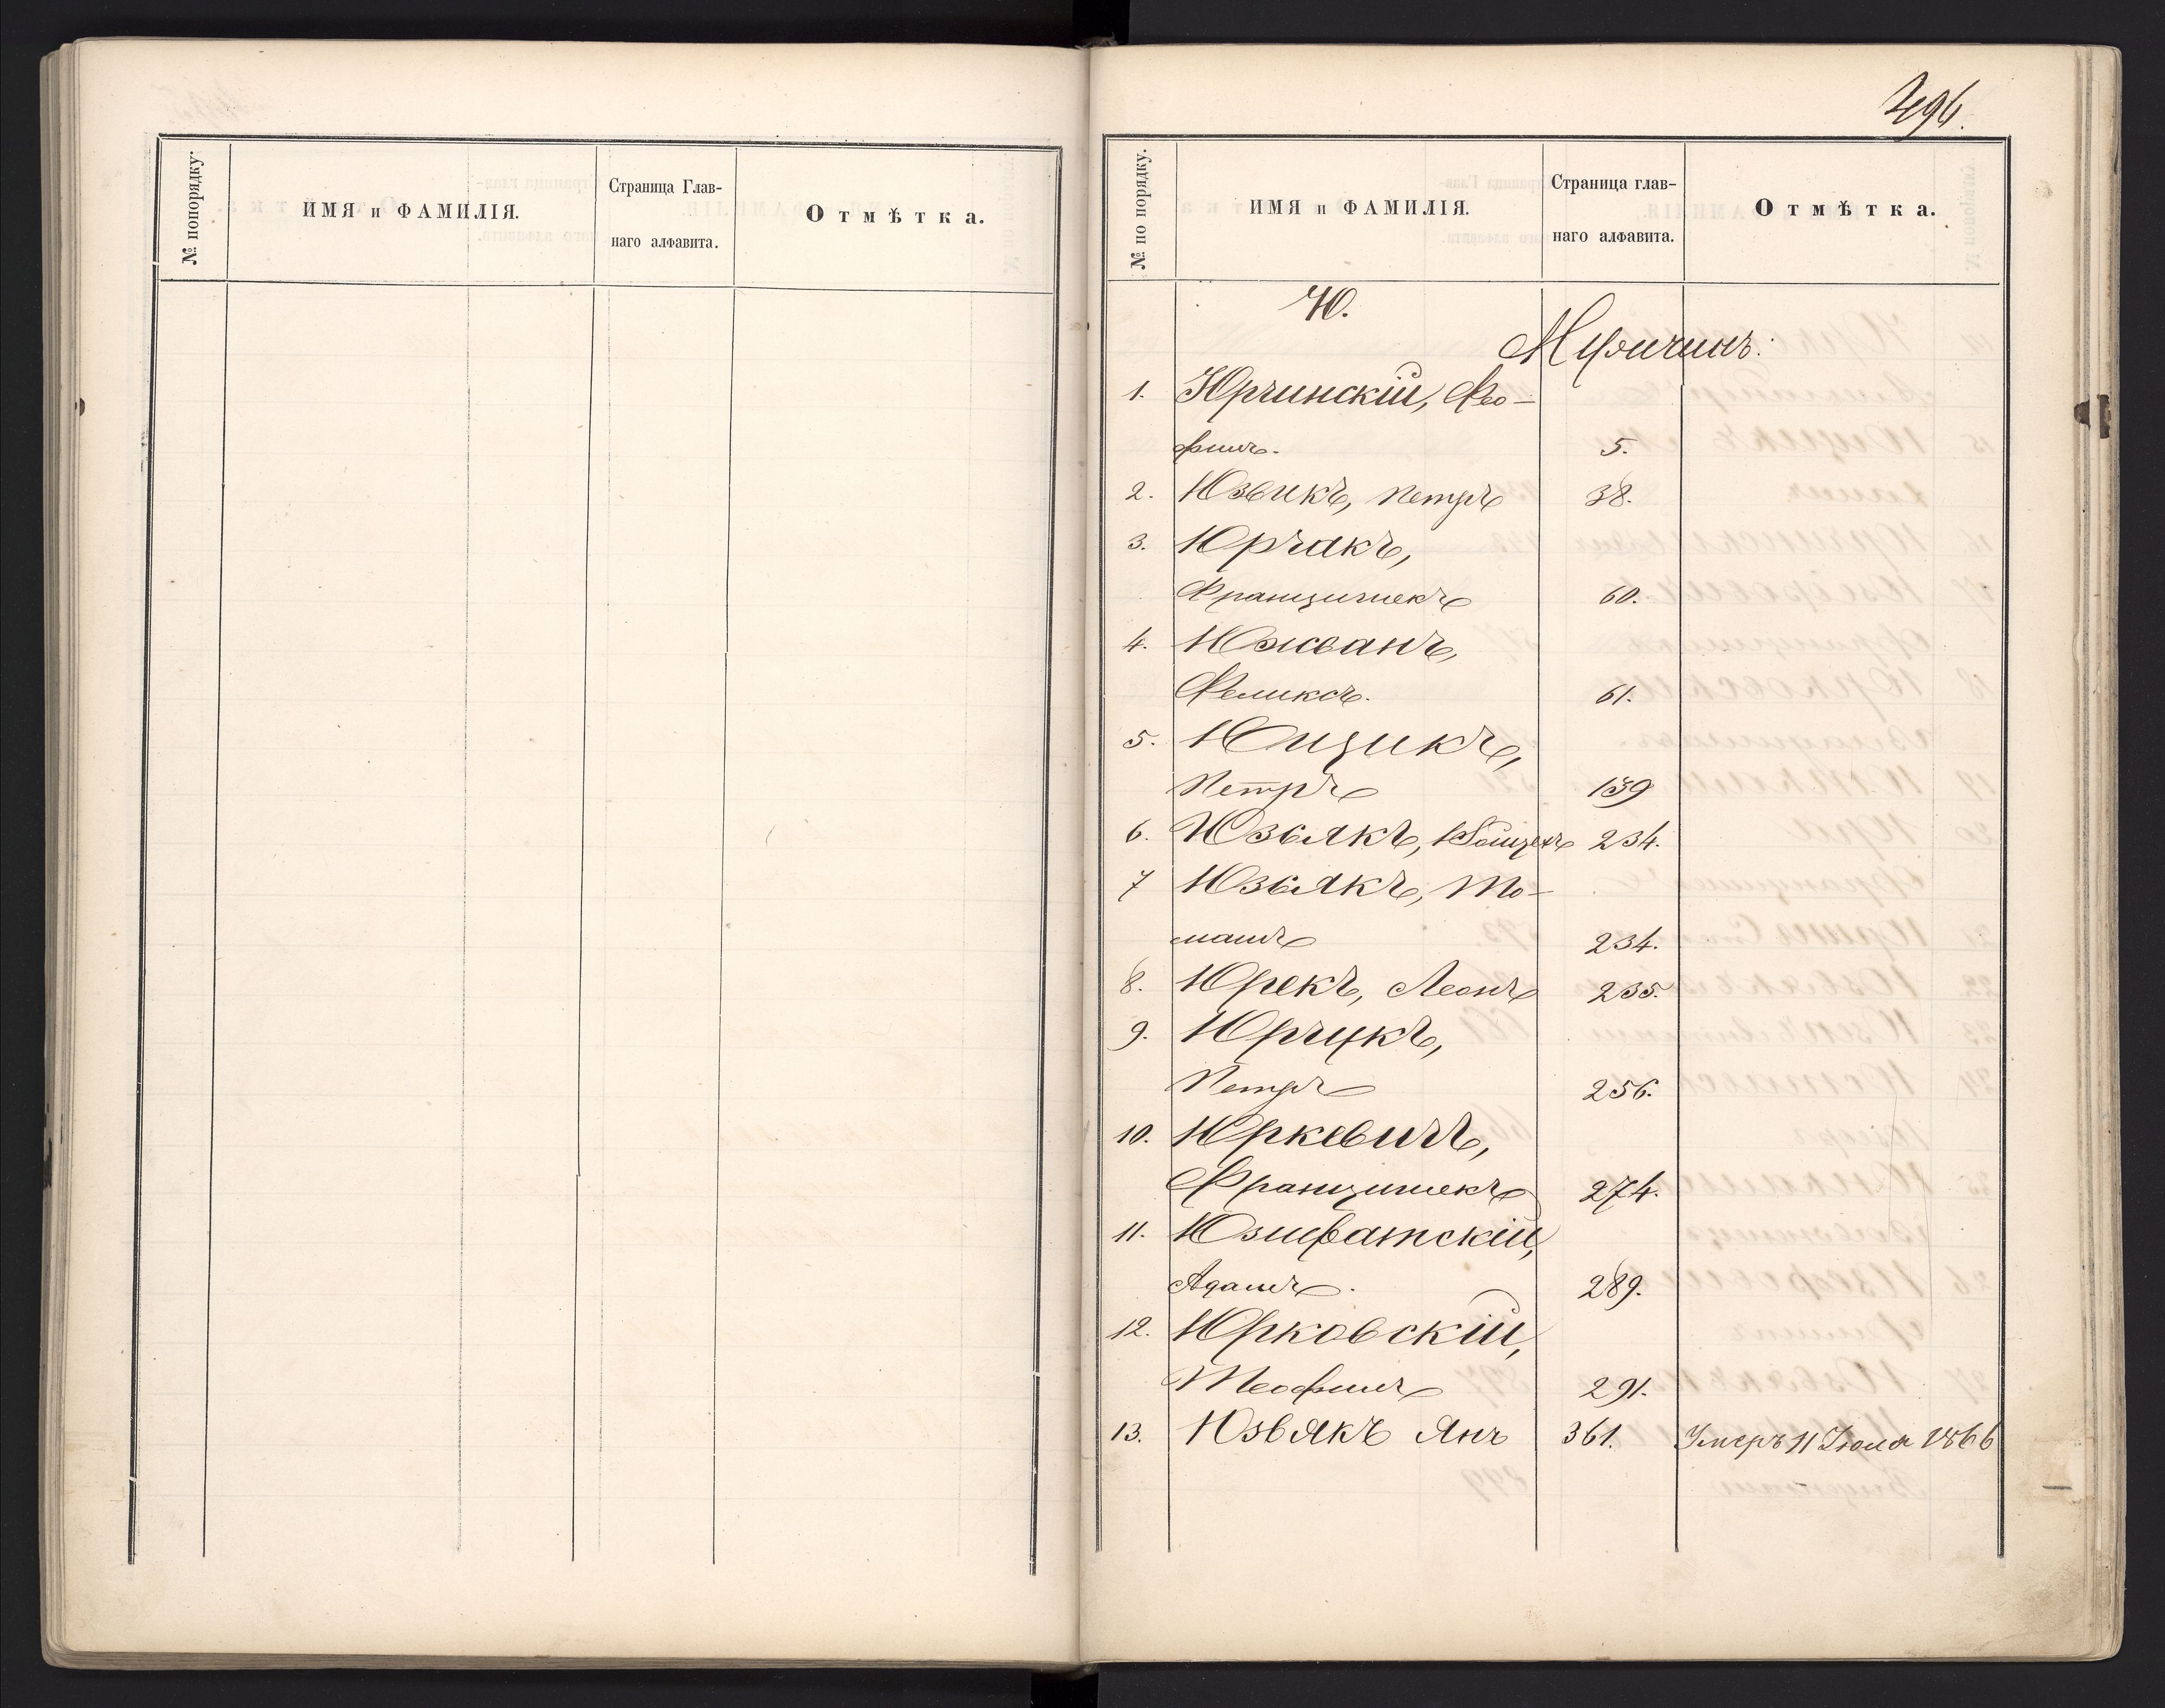 № попорядку.
ИМЯ и ФАМИЛІЯ.
Страница Глав-
наго алфавита.
Отмѣтка.
496.
№ по порядку.
ИМЯ и ФАМИЛІЯ.
Страница глав-
наго алфавита.
Отмѣтка.
Ю.
Мужчинъ:
1. Юрчинскій, Фео-
филъ. 5.
2. Юзвикъ, Петръ 38.
3. Юрчакъ,
Францишекъ 60.
4. Южванъ,
Феликсъ. 61.
5. Ющикъ,
Петръ 139
6. Юзвякъ, Войцехъ 234.
7 Юзвякъ, То-
машъ 234.
8. Юрекъ, Леонъ 235.
9. Юрчукъ,
Петръ 256.
10. Юркевичъ,
Францишекъ 274.
11. Юзифатскій,
Адамъ. 289.
12. Юрковскій,
Теофилъ 291.
13. Юзвякъ Янъ 361. Умеръ 11 Іюля 1866